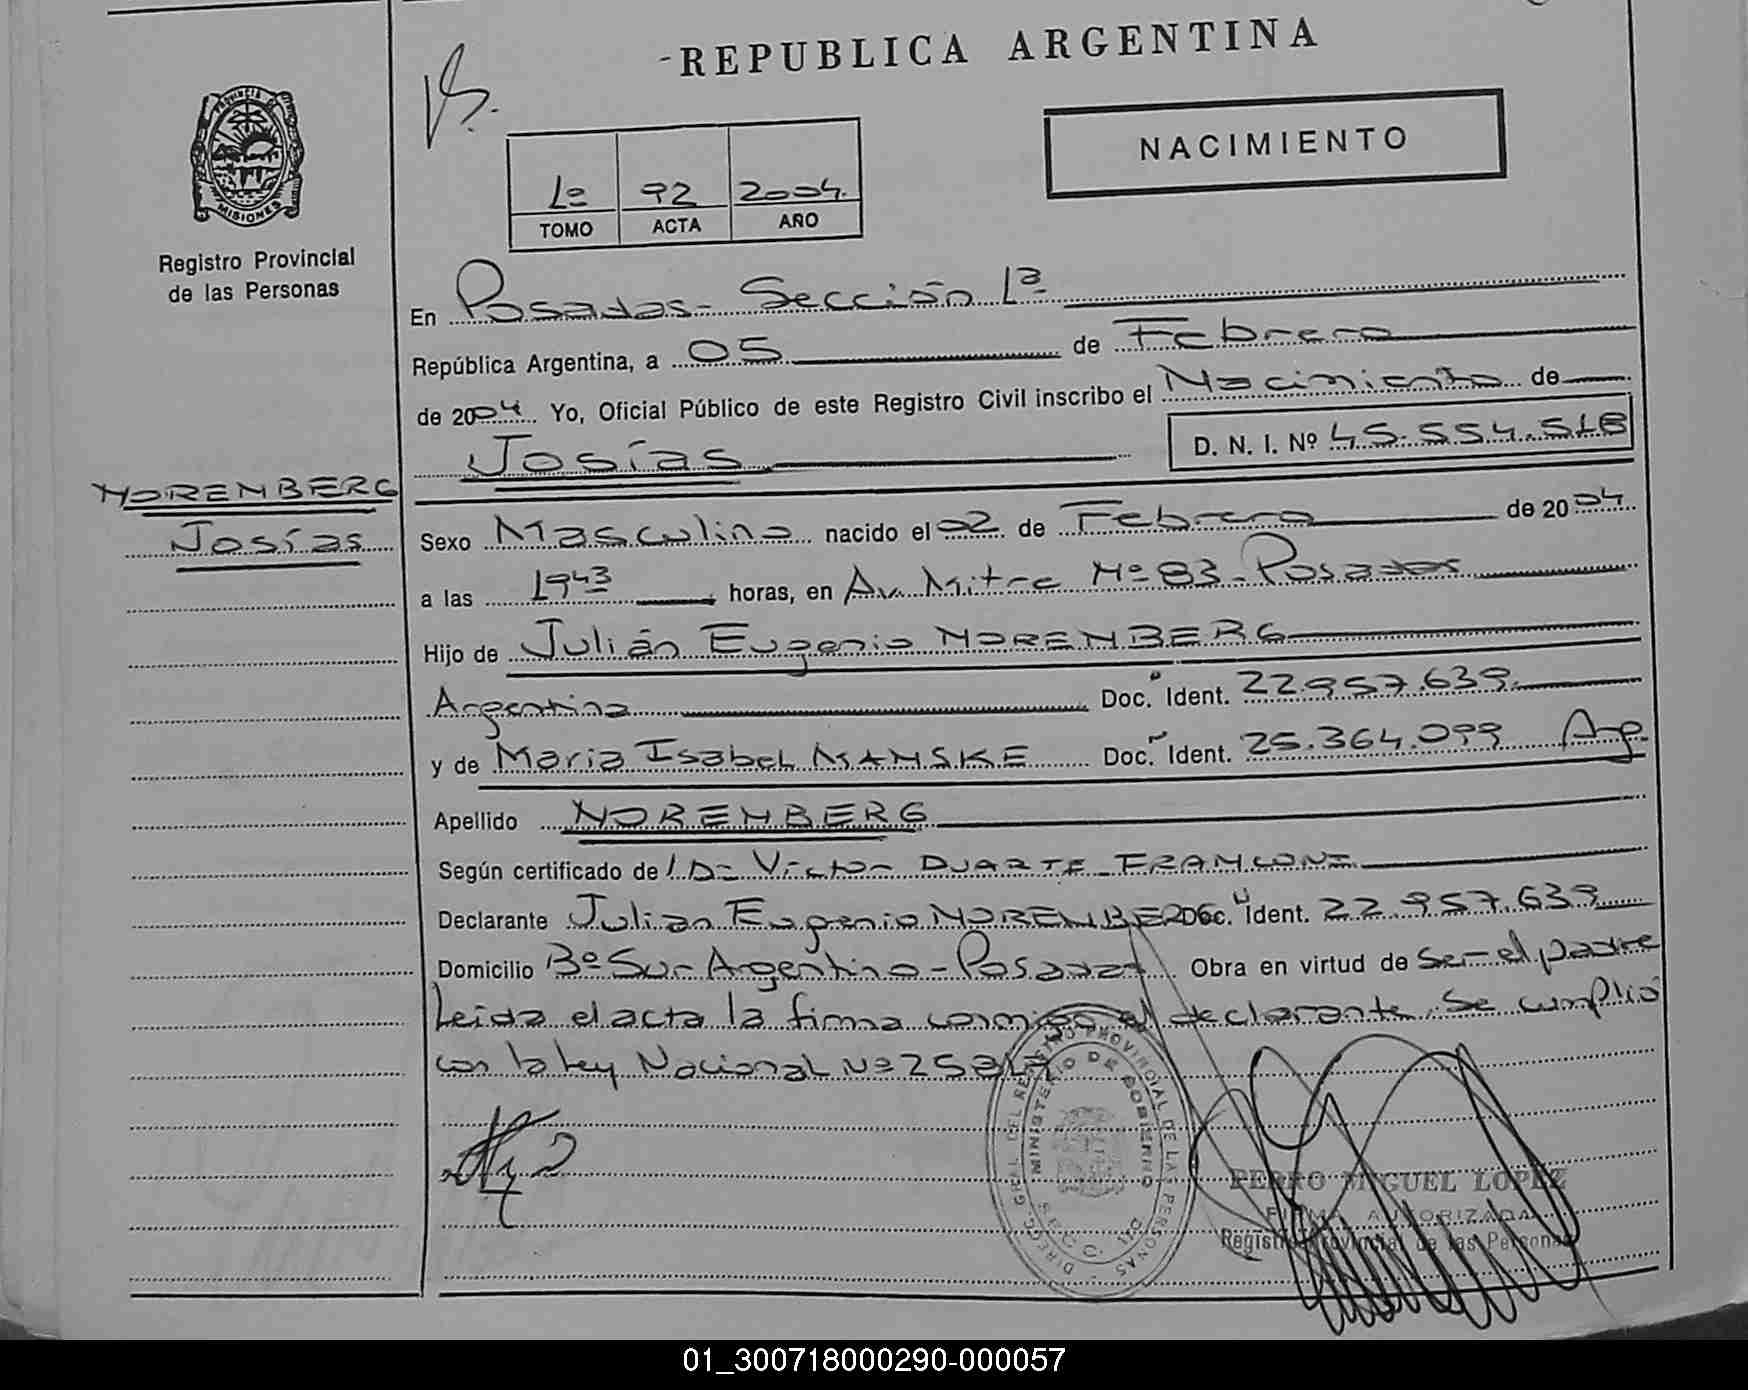 REPUBLICA ARGENTINA
NACIMIENTO
1º 92 2004.
TOMO ACTA AÑO
PROVINCIA DE MISIONES
Registro Provincial
de las Personas
En Posadas - Sección 1ª
República Argentina, a 05 de Febrero
de 2004. Yo, Oficial Público de este Registro Civil inscribo el Nacimiento de
Josías D. N. I. Nº 45.554.518
NORENBERG
Josías
Sexo Masculino nacido el 02 de Febrero de 2004.
a las 1943 horas, en Av. Mitre Nº 83 - Posadas
Hijo de Julián Eugenio NORENBERG
Argentina Doc. Ident. 22.957.639.
y de Maria Isabel MANSKE Doc. Ident. 25.364.099 Arg.
Apellido NORENBERG
Según certificado de Dr Victor DUARTE FRANCONI
Declarante Julian Eugenio NORENBERG Doc. Ident. 22.957.639
Domicilio Bº Sur Argentino - Posadas. Obra en virtud de ser el padre
Leida el acta la firma conmigo el declarante. Se cumplió
con la ley Nacional Nº
DIRECC. GRAL. DEL REGISTRO PROVINCIAL DE LAS PERSONAS
MINISTERIO DE GOBIERNO
PEDRO MIGUEL LOPEZ
FIRMA AUTORIZADA
Registro Provincial de las Personas
01_300718000290-000057